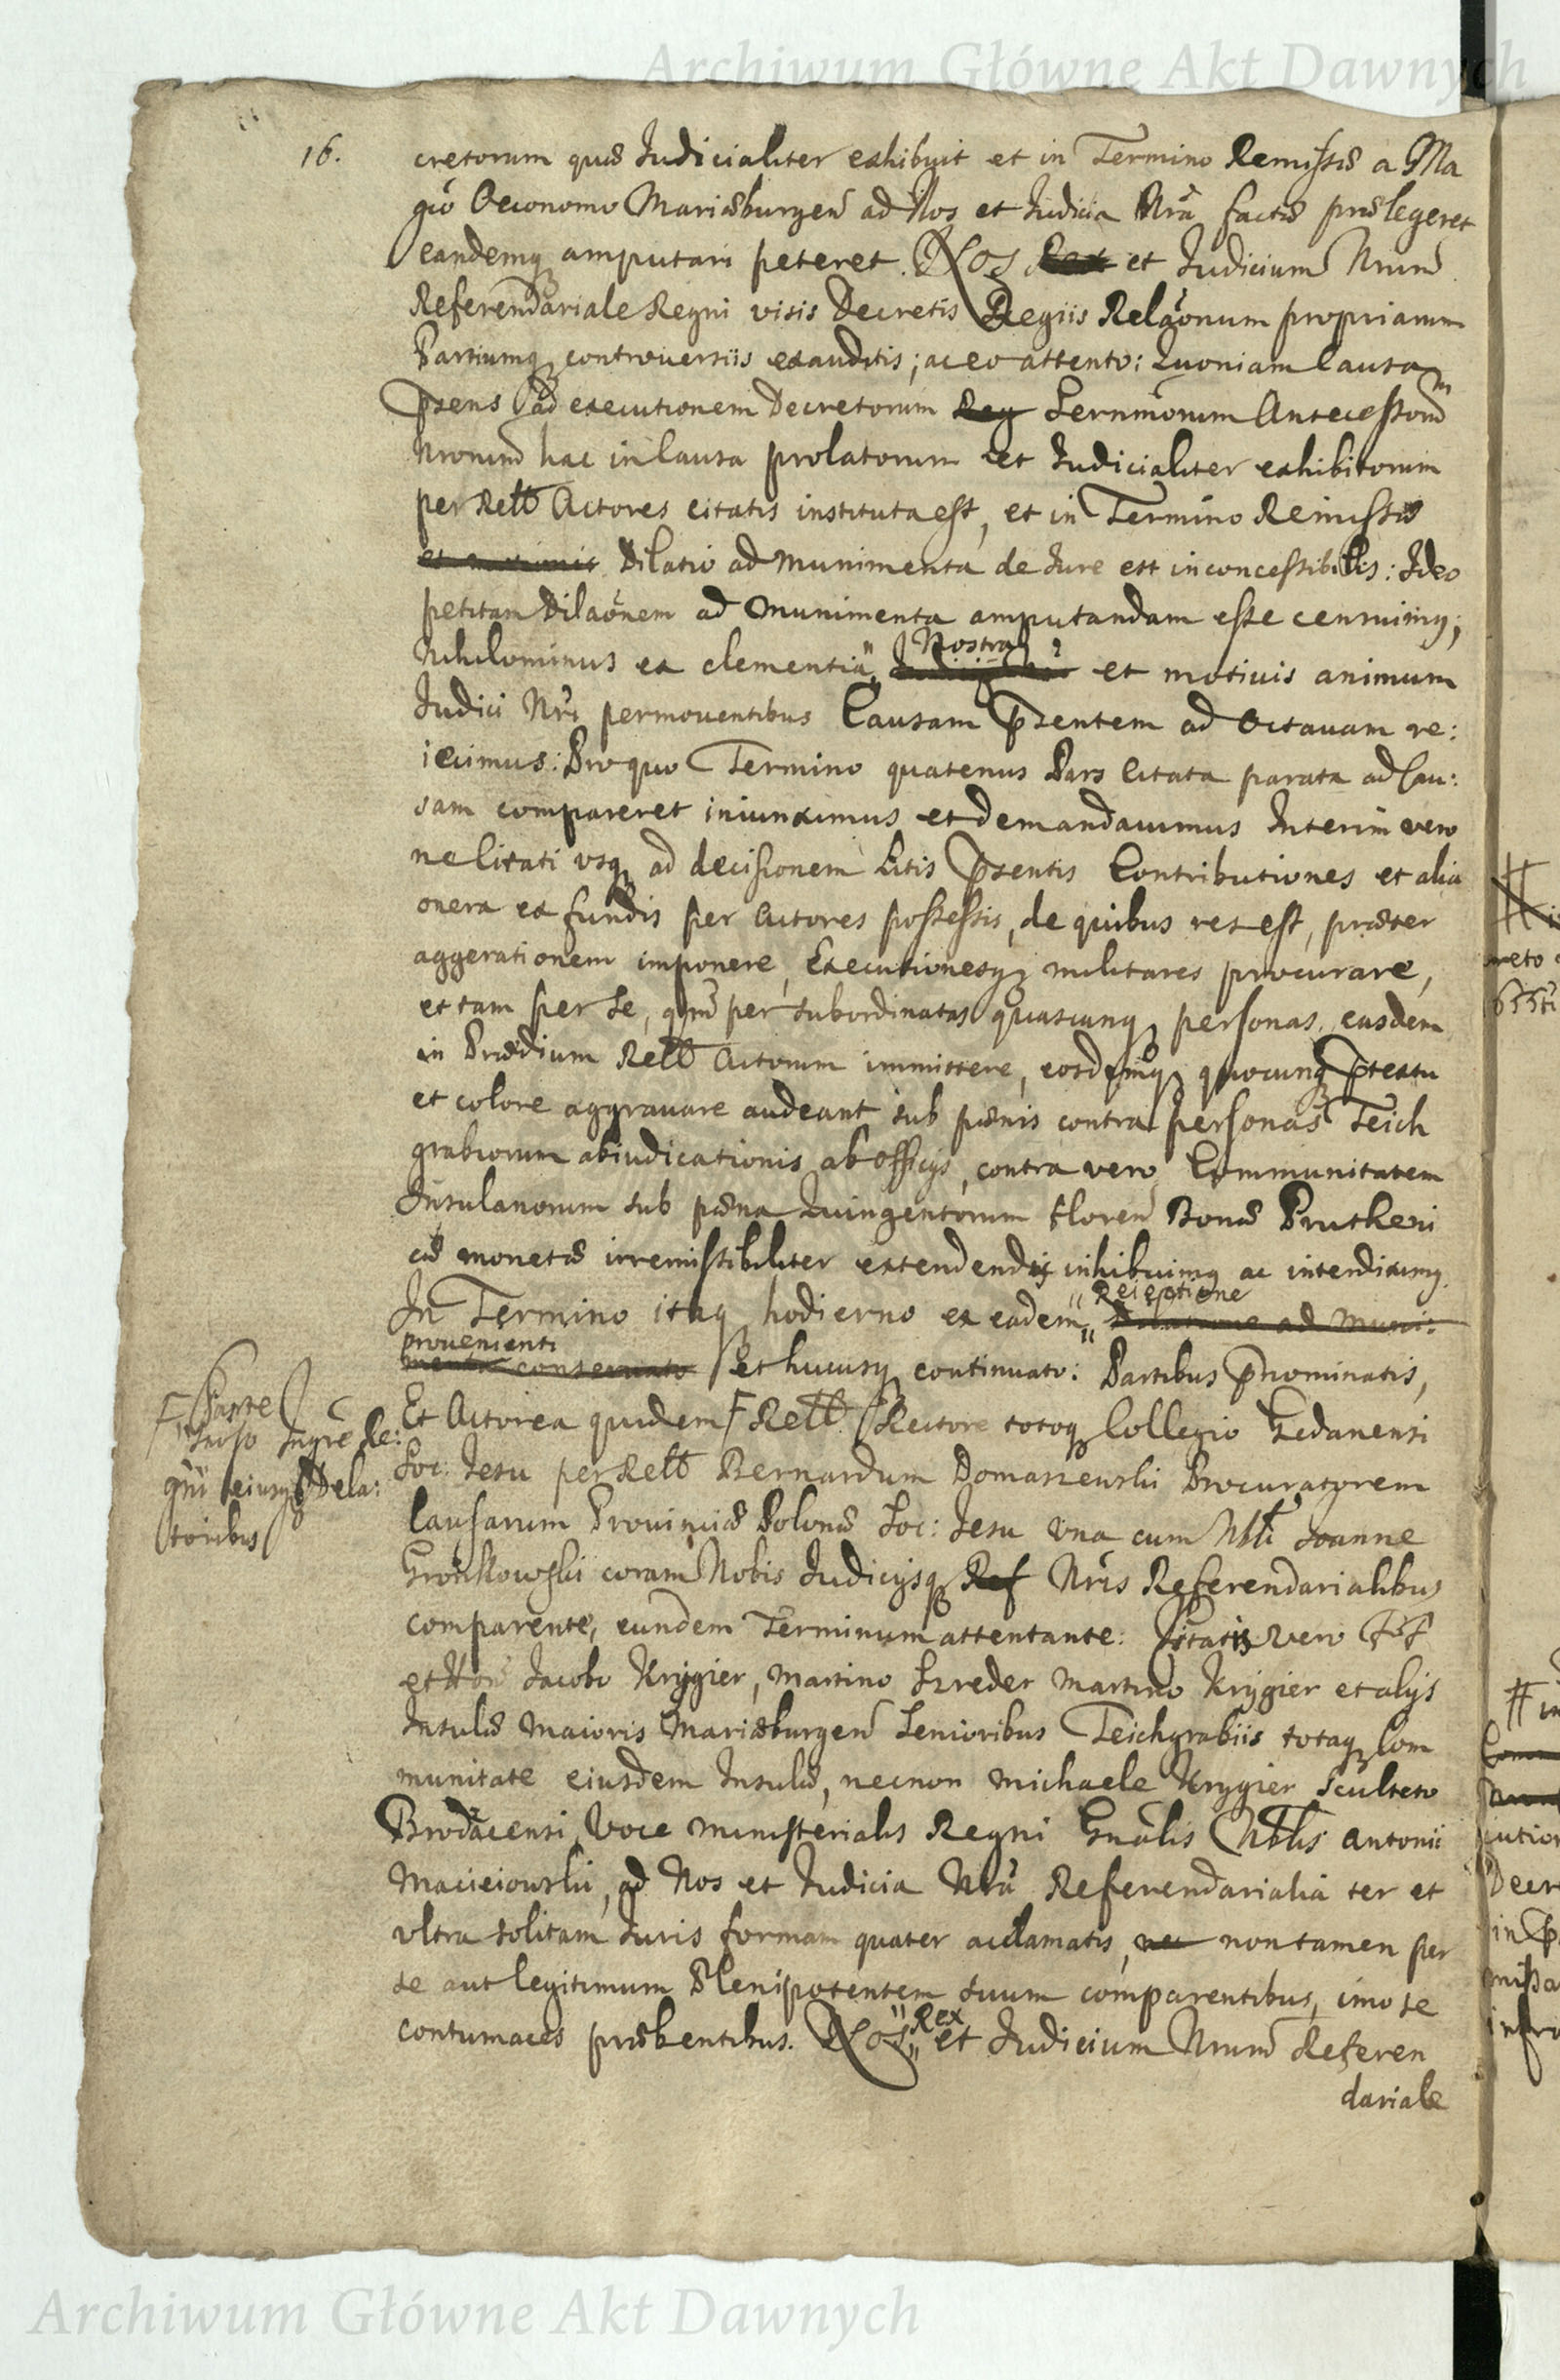 Archiwum Główne Akt Dawnych
16.
cretorum quæ Judicialiter exhibuit et in Termino Remissæ a Ma
gco Oeconomo Mariæburgen ad Nos et Judicia Nra factæ prælegeret
eandemq amputari peteret. Nos Rex et Judicium Nrum
Referendariale Regni visis Decretis Regiis Relaonum propriarum
Partiumq controversiis exauditis; ac eo attento: Quoniam Causa
Przens ad executionem Decretorum Reg Sernmorum Antecessorum
Nrorum hac in Causa prolatorum et Judicialiter exhibitorum
per Rell Actores citatis instituta est, et in Termino Remissæ
Dilatio ad Munimenta de Jure est inconcessibilis: Ideo
petitam Dilaonem ad Munimenta amputandam esse censuimq;
Nihilominus ex clementia Nostra et motivis animum
Judici Nri permoventibus Causam Przentem ad Octavam re:
iecimus: Pro quo Termino quatenus Pars Citata parata ad Cau:
sam compareret iniunximus et demandavimus Interim vero
ne Citati vsq ad decisionem Litis Przentis Contributiones et alia
onera ex fundis per Actores possessis, de quibus res est, præter
aggerationem imponere, Executionesq militares procurare,
et tam per se, qm per subordinatas quascunq personas easdem
in Prædium Rell Actorum immittere, eosdemq quocunq Ptextu
et colore aggravare audeant sub pænis contra personas Teich
grabiorum abiudicationis ab officijs, contra vero Communitatem
Insulanorum sub pæna Quingentorum Floren Bonæ Prutheni
cæ monetæ irremissibiliter extendendis inhibuimq ac interdiximq.
In Termino itaq hodierno ex eadem Reiectione Dilatione ad Muni:
provenienti
menta conservato et hucusq continuato: Partibus Pnominatis,
Et Actorea quidem Rell Rectore totoq Collegio Gedanensi
Parte
Inso Ingre Re:
gni eiusq Dela:
toribus
Soc: Jesu per Rell Bernardum Domaszewski Procuratorem
Causarum Provinciæ Polonæ Soc: Jesu vna cum Nbli Joanne
Gronkowski coram Nobis Judicijsq Ref Nris Referendarialibus
comparente, eundem Terminum attentante: Citatis vero
et Hon Jacobo Krygier, Martino Szreder Martino Krygier et alijs
Insulæ Maioris Mariæburgen Senioribus Teichgrabiis totaq Com
munitate eiusdem Insulæ, necnon Michaele Krygier Sculteto
Brodacensi Voce Ministerialis Regni Gnalis Nblis Antonii
Macieiowski, ad Nos et Judicia Nra Referendarialia ter et
vltra solitam Juris formam quater acclamatis, nec non tamen per
se aut legitimum Plenipotentem suum comparentibus, imo se
contumaces præbentibus. Nos Rex et Judicium Nrum Referen
dariale
Archiwum Główne Akt Dawnych